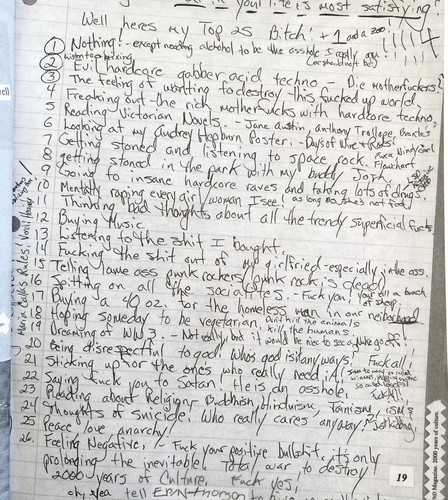 in your life is most satisfying?
Well heres my Top 25 Bitch! + 1 and a zoo.
1 Nothing! - except needing alcohol to be the asshole I really am!
(or should not be)
2 Evil hardcore gabber acid techno - Die Motherfuckers!
3 The feeling of wanting to destroy this fucked up world.
4 Freaking out the rich motherfucks with hardcore techno.
5 Reading Victorian Novels. - Jane Austin, anthony Trollope, Bronte's
6 Looking at my Audrey Hepburn Poster. - Days of Wine & Roses!
7 Getting stoned and listening to space rock.
8 getting stoned in the park with my buddy Jorn. Flowchart
9 Going to insane hardcore raves and taking lots of drugs.
10 Mentally raping every girl/woman I see! as long as she's not fat!
11 Thinking bad thoughts about all the trendy superficial fucks
12 Buying Music
13 Listening to the shit I bought.
14 Fucking the shit out of my girlfried - especially in the ass.
15 Telling lame ass punk rockers (punk rock is dead)
16 Spitting on all the socialites. - Fuck you! your all a bunch
of sheep.
17 Buying a 40 oz. for the homeless man in our neiborhood
18 Hoping someday to be vegetarian. Dont kill the animals
kill the humans.
19 Dreaming of WW3. - Not really, but it would be nice to see a nuke go off!
20 Being disrespectful to god! Who's god is it anyways! Fuck all!
21 Sticking up for the ones who really need it!
22 Saying fuck you to Satan! He is an asshole.
23 Reading about Religion, Buddhism, hinduism, Janism, isms
24 Thoughts of suicide. Who really cares anyway? Just kidding.
25 Peace love anarchy!
26. Feeling Negative, - Fuck your positive bullshit, it's only
prolonging the inevitable. Total war to destroy
2000 years of Culture, Fuck yes!
oh yea tell
19
Maria Callas Rules!